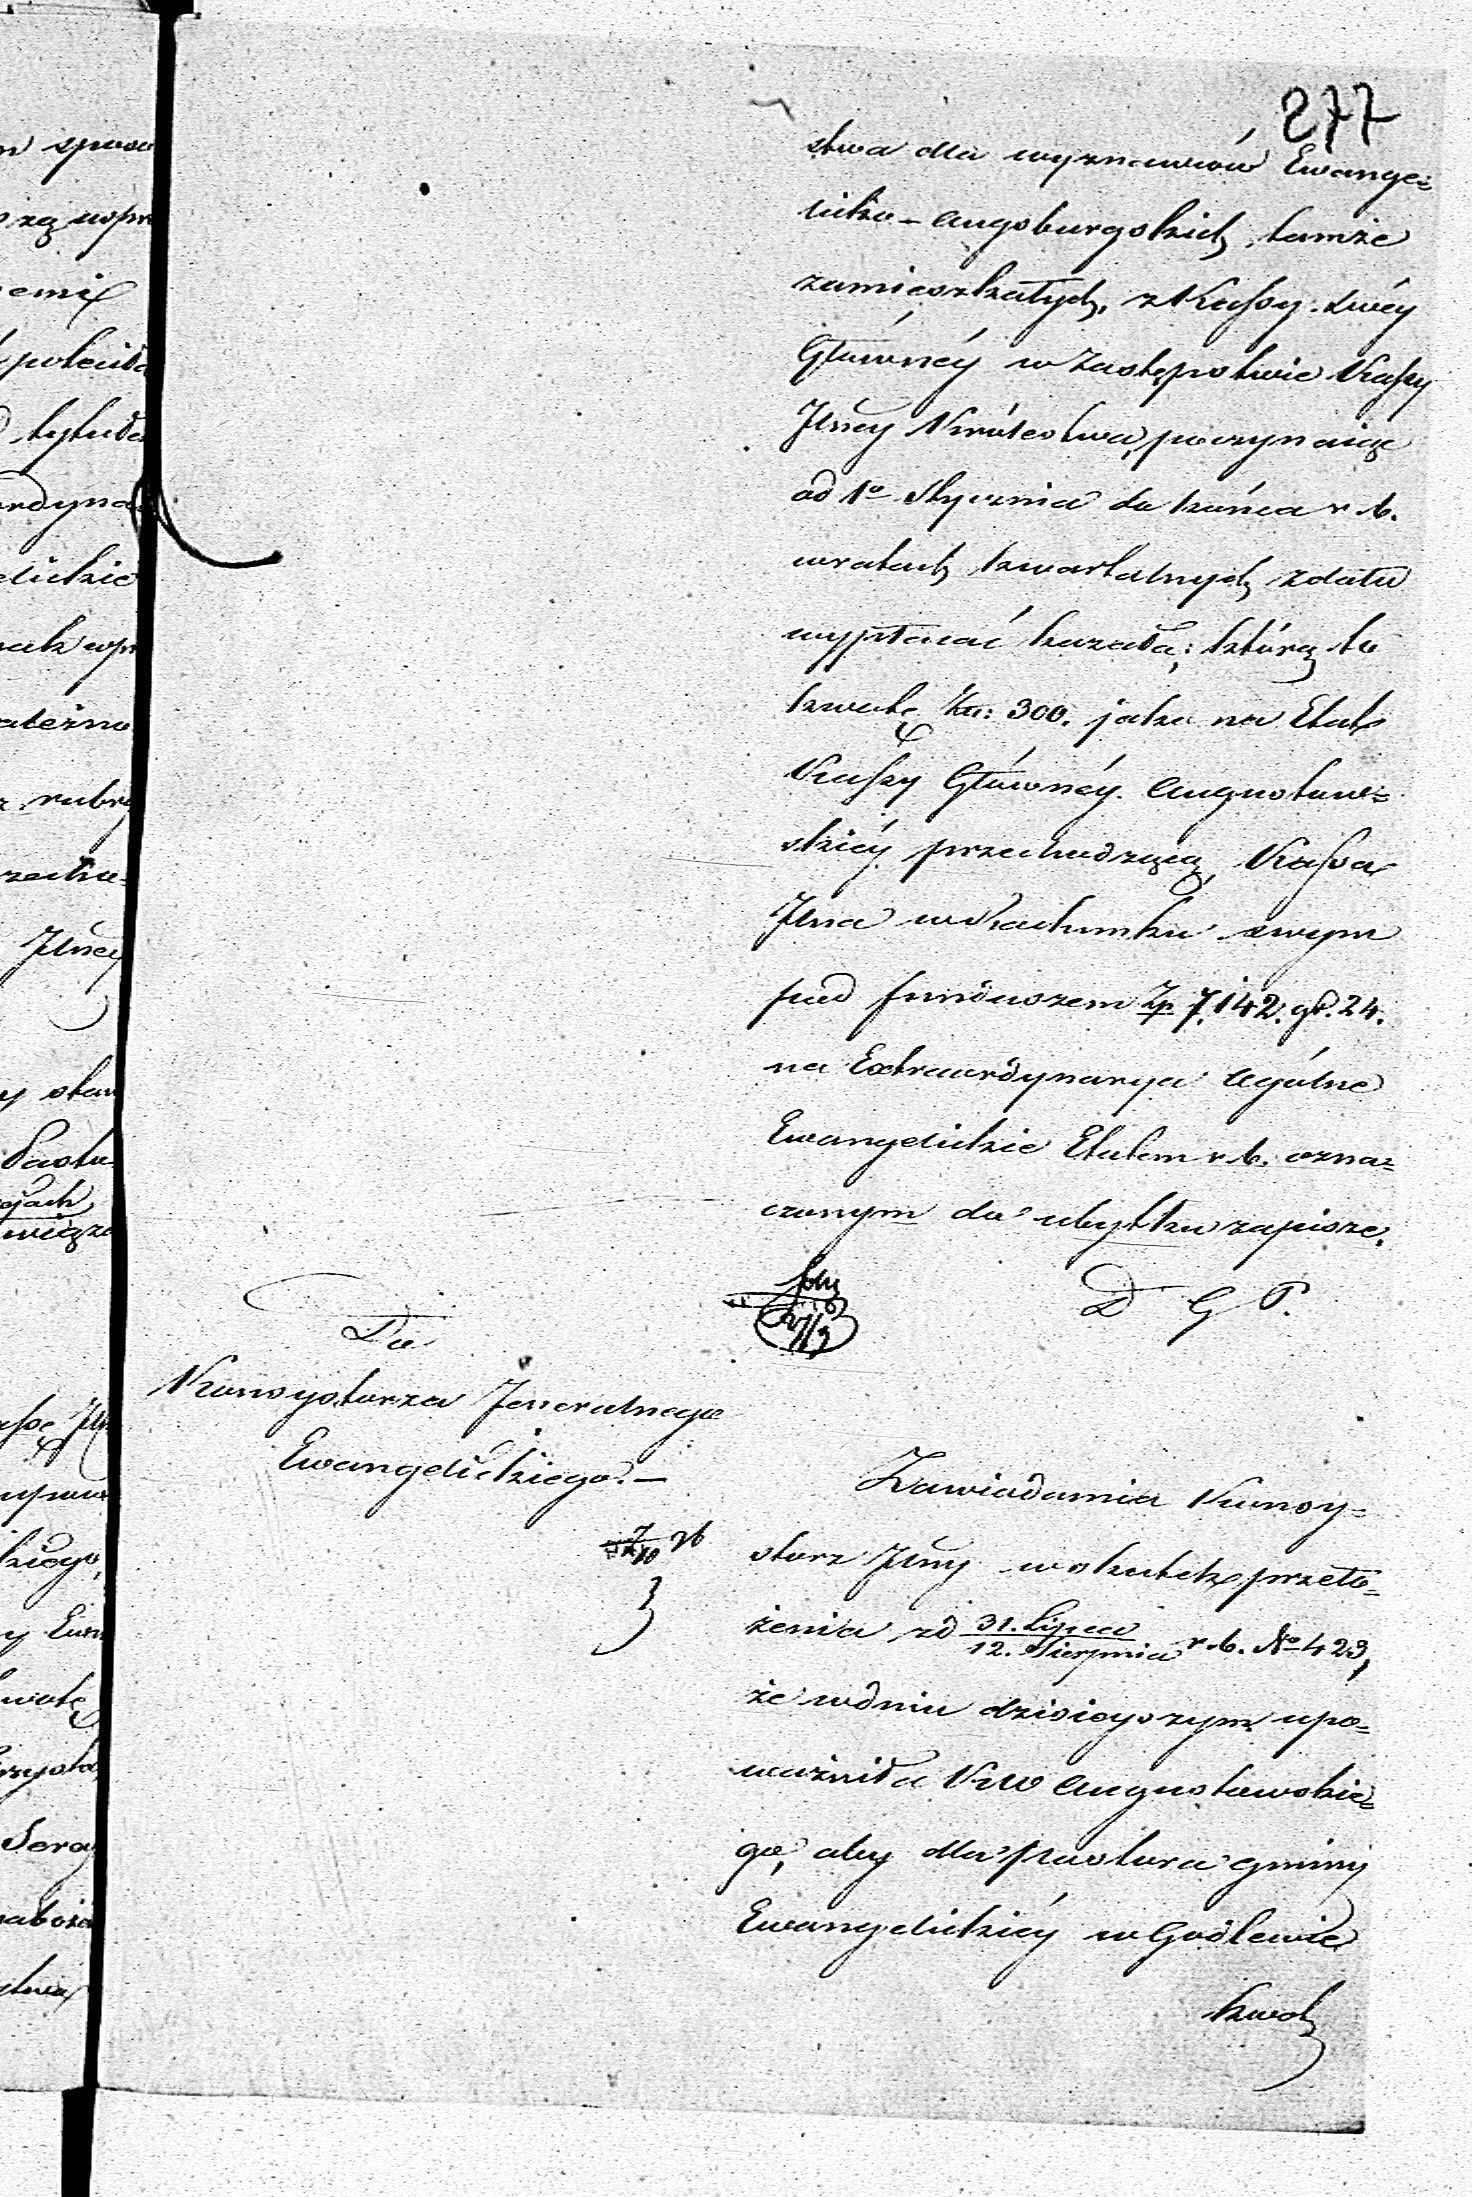 277
stwa dla wyznawców Ewange=
licko-Augsburgskich, tamże
zamieszkałych, z Kassy. swéy
Głównéy w Zastępstwie Kassy
Jlnéy Królestwa, poczynaiąc
od 1º Stycznia do końca r. b.
w ratach kwartalnych zdołu
wypłacać kazała; którą to
kwotę Zło: 300. jako na Etat
Kassy Głównéy. Augustow=
skiéy przechodzącą, Kassa
Jlna w Rachunku swym
pod funduszem Zp. 7,142. gr. 24.
na Extraordynarya ogólne
Ewangelickie Etatem r. b. ozna=
czonym do ubytku zapisze.
D G P.
Do
Konsystorza Jeneralnego
Ewangelickiego.-
Zawiadamia Konsy=
storz Jlny w skutek przeło=
żenia zd 31. Lipca / 12. Sierpnia r. b. Nº 423,
że w dniu dzisieyszym upo=
ważniła KW Augustowskie=
go, aby dla Pastora gminy
Ewangelickiéy w Godlewie
kwotę
n sposo
poleciła
tytuła
rdyna
elickie
rubry
Jlnéy
y stan
Pasto
kiego,
y Ewa
wotę